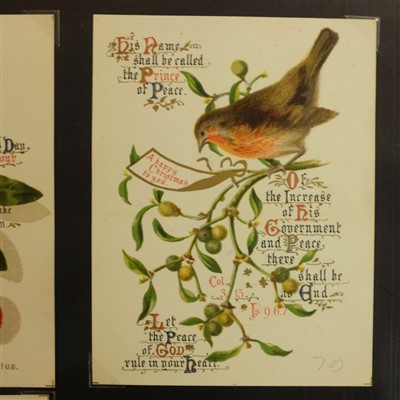 His Name
shall be called
the Prince
of Peace.
A happy
Christmas
to you
Of
the Increase
of His
Government
and Peace
there
shall be
no End.
Col
3.15.
Is 9.6.7
Let
the Peace
of GOD
rule in your heart.
Day,
our
the
tus.